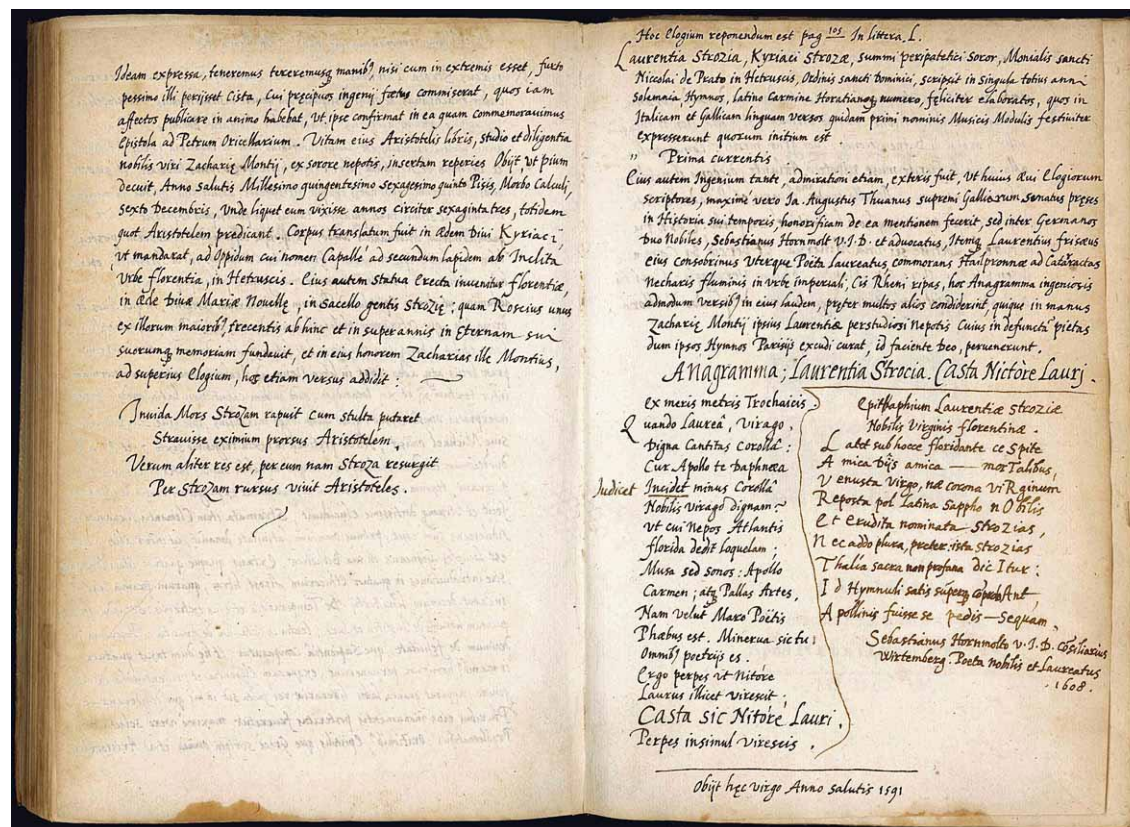 Ideam expressa, teneremus tereremusq manib9, nisi cum in extremis esset, furto
pessimo illi perijsset Cista, Cui pręcipuos ingenij fœtus Commiserat, quos iam
affectos publicare in animo habebat, ut ipse confirmat in ea quam commemorauimus
Epistola ad Petrum Oricellarium. Vitam eius Aristotelis libris, studio et diligentia
nobilis viri Zacharię Montij, ex sorore nepotis, insertam reperies Obijt vt pium
decuit, Anno Salutis Millesimo quingentesimo Sexagesimo quinto Pisis, Morbo Calculi,
sexto Decembris, Vnde liquet eum vixisse annos circiter sexaginta tres, totidem
quot Aristotelem prędicant. Corpus translatum fuit in Ædem Diui Kyriaci,
vt mandarat, ad Oppidum cui nomen Capallé ad secundum lapidem ab Inclita
Vrbe florentia, in Hetruscis. Eius autem Statua Erecta inuenitur florentiæ,
in æde Diuæ Mariæ Nouellę, in Sacello gentis Strozię: quam Roscius unus
ex illorum maiorib9 trecentis ab hinc et in super annis in Eternam sui
suorumq memoriam fundauit, et in eius honorem Zacharias ille Montius,
ad superius Elogium, hos etiam versus addidit:
Inuida Mors Strozam rapuit Cum stulta putaret
Strauisse eximium prorsus Aristotelem.
Verum aliter res est, per eum nam Stroza resurgit
Per Strozam rursus viuit Aristoteles.
Hoc Elogium reponendum est pag 105 In littera. L.
Laurentia Strozia, Kyriaci Strozæ, summi peripatetici Soror, Monialis sancti
Niccolai de Prato in Hetruscis, Ordinis sancti Dominici, scripsit in Singula totius anni
Solemnia Hymnos, latino Carmine Horatianoq numero, feliciter elaboratos, quos in
Italicam et Gallicam linguam versos quidam primi nominis Musicis Modulis festiuiter
expresserunt quorum initium est
" Prima currentis
Eius autem Ingenium tantę, admirationi etiam, exteris fuit, vt huius Æui Elogiorum
scriptores, maximè vero Ja. Augustus Thuanus supremi Galliarum Senatus pręses
in Historia sui temporis, honorificam de ea mentionem fecerit, sed inter Germanos
Duo Nobiles, Sebastianus Hornmolt V.J.D. et aduocatus, Itemq Laurentius frisæus
eius Consobrinus Vterque Poëta Laureatus commorans Hailpronnæ ad Cataractas
Necharis fluminis in vrbe imperiali, Cis Rheni ripas, hoc Anagramma ingeniosis
admodum versib9 in eius laudem, pręter multos alios Condiderint, quique in manus
Zacharię Montij ipsius Laurentiæ perstudiosi nepotis Cuius in defunctā pietas
dum ipsos Hymnos Parisijs excudi curat, id faciente Deo, peruenerunt.
Anagramma; Laurentia Strocia. Casta Nictóre Laurj.
Ex meris metris Trochaicis
Quando Laureâ, Virago.
Digna Cantitas Corollâ:
Cur Apollo te Daphnæa
Judicet Incidet minus Corollâ
Nobilis viragô dignam?
Vt cui Nepos Atlantis
florida dedit loquelam;
Musa sed sonos: Apollo
Carmen; atq Pallas Artes,
Nam velut Maro Poëtis
Phæbus est. Minerua sic tu
Omnib9 poetrijs es.
Ergo perpes vt Nitóre
Laurus illicet virescit;
Casta sic Nitóré Lauri.
Perpes insimul virescis.
Epitaphium Laurentiæ Stroziæ
Nobilis Virginis florentinæ.
Latet sub hocce floridante ceSpite
Amica Dijs amica — morTalibus,
Venusta virgo, næ corona viRginum
Reposta pol Latina Sappho nObilis
Et Erudita nominata Strozias,
Nec addo plura, pręter ista Strozias
Thalia sacra non profana dic Itur:
Id Hymnuli satis superq cōprobAnt,
Apollinis fuisse se pedis—Sequam.
Sebastianus Hornmolto V.J.D. Cōsiliarius
Wirtemberg. Poeta nobilis et Laureatus
1608.
Obijt hęc virgo Anno salutis 1591